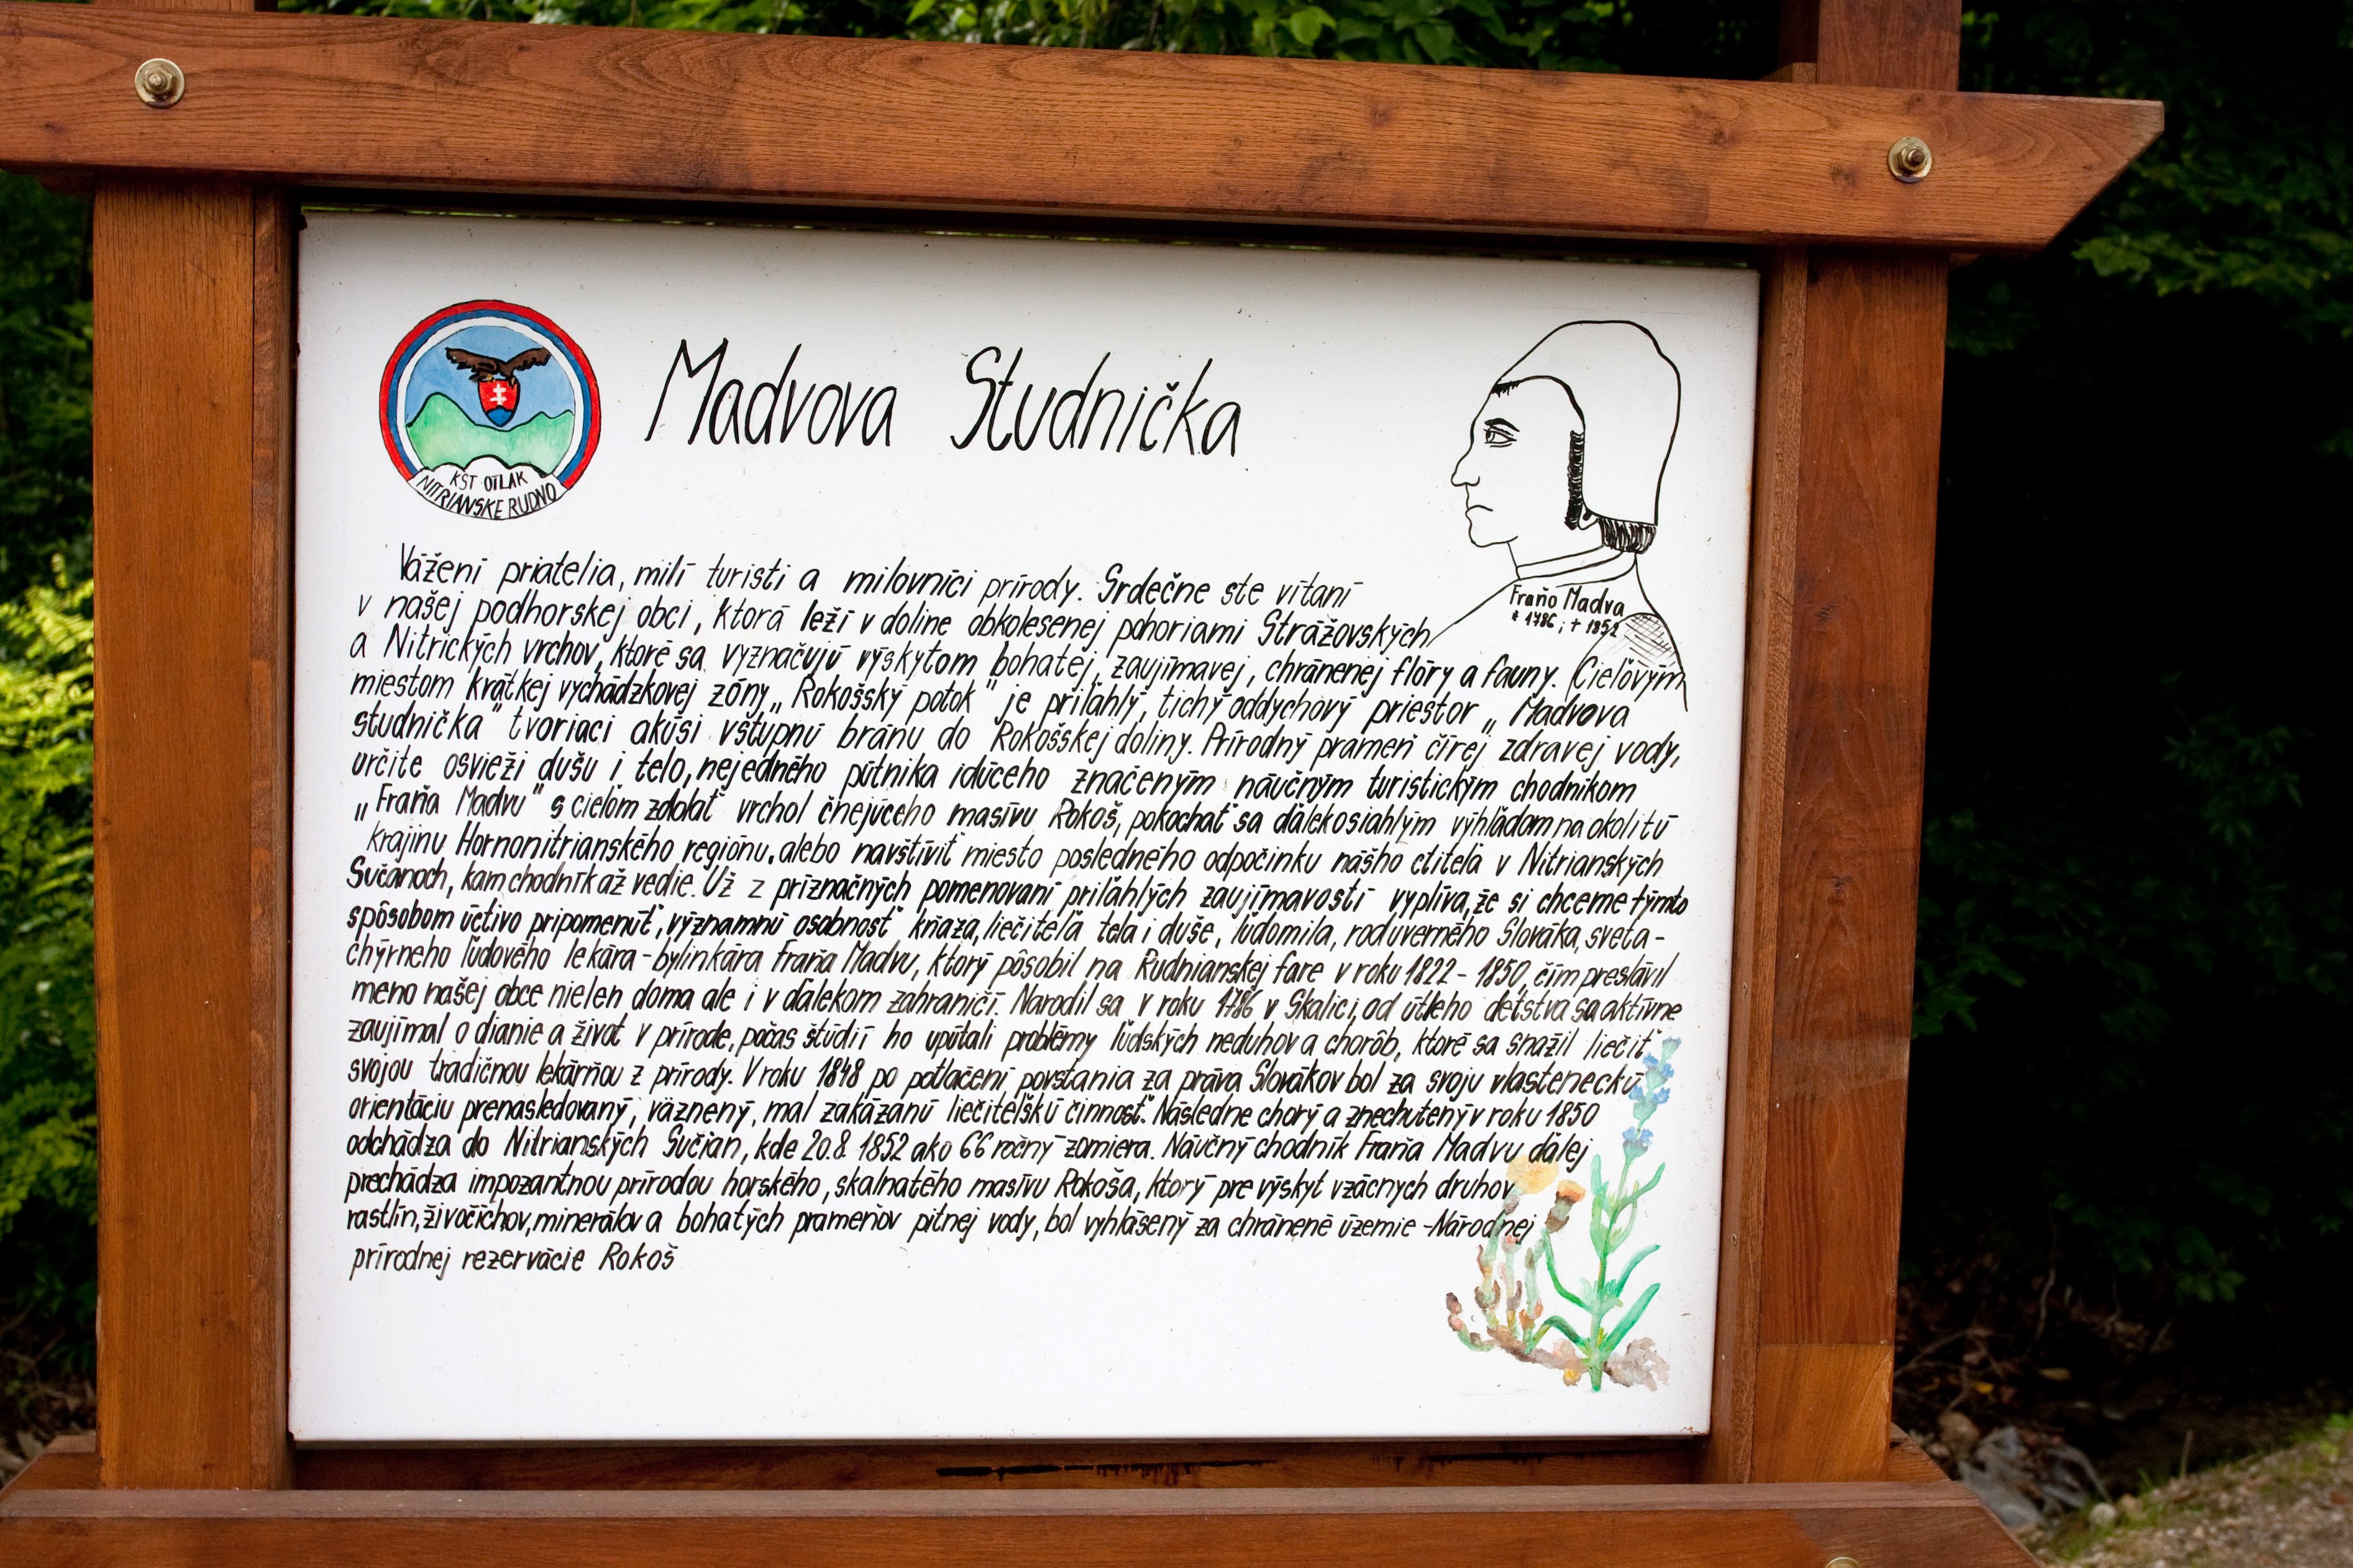 Madvova Studnička
KST OTLAK
NITRIANSKE RUDNO
Fraňo Madva
* 1786 ; + 1852
Vážení priatelia, milí turisti a milovníci prírody. Srdečne ste vítaní
v našej podhorskej obci, ktorá leží v doline obkolesenej pohoriami Strážovských
a Nitrických vrchov, ktoré sa vyznačujú výskytom bohatej, zaujímavej, chránenej flóry a fauny. Cieľovým
miestom krátkej vychádzkovej zóny „Rokošský potok" je priľahlý, tichý oddychový priestor „Madvova
studnička" tvoriaci akúsi vstupnú bránu do Rokošskej doliny. Prírodný prameň čírej zdravej vody,
určite osvieži dušu i telo, nejedného pútnika idúceho značeným náučným turistickým chodníkom
„Fraňa Madvu" s cieľom zdolať vrchol čnejúceho masívu Rokoš, pokochať sa ďalekosiahlým výhľadom na okolitú
krajinu Hornonitrianského regiónu, alebo navštíviť miesto posledného odpočinku nášho ctiteľa v Nitrianských
Sučanoch, kam chodník až vedie. Už z príznačných pomenovaní priľahlých zaujímavostí vyplíva, že si chceme týmto
spôsobom úctivo pripomenúť, významnú osobnosť kňaza, liečiteľa tela i duše, ľudomila, roduverného Slováka, sveta-
chýrneho ľudového lekára-bylinkára Fraňa Madvu, ktorý pôsobil na Rudnianskej fare v roku 1822 - 1850, čím preslávil
meno našej obce nielen doma ale i v ďalekom zahraničí. Narodil sa v roku 1786 v Skalici, od útleho detstva sa aktívne
zaujímal o dianie a život v prírode, počas štúdií ho upútali problémy ľudských neduhov a chorôb, ktoré sa snažil liečiť
svojou tradičnou lekárňou z prírody. V roku 1848 po potlačení povstania za práva Slovákov bol za svoju vlasteneckú
orientáciu prenasledovaný, väznený, mal zakázanú liečiteľskú činnosť. Následne chorý a znechutený v roku 1850
odchádza do Nitrianských Sučian, kde 20.8. 1852 ako 66 ročný zomiera. Náučný chodník Fraňa Madvu ďalej
prechádza impozantnou prírodou horského, skalnatého masívu Rokoša, ktorý pre výskyt vzácnych druhov
rastlín, živočíchov, minerálov a bohatých prameňov pitnej vody, bol vyhlásený za chránené územie - Národnej
prírodnej rezervácie Rokoš